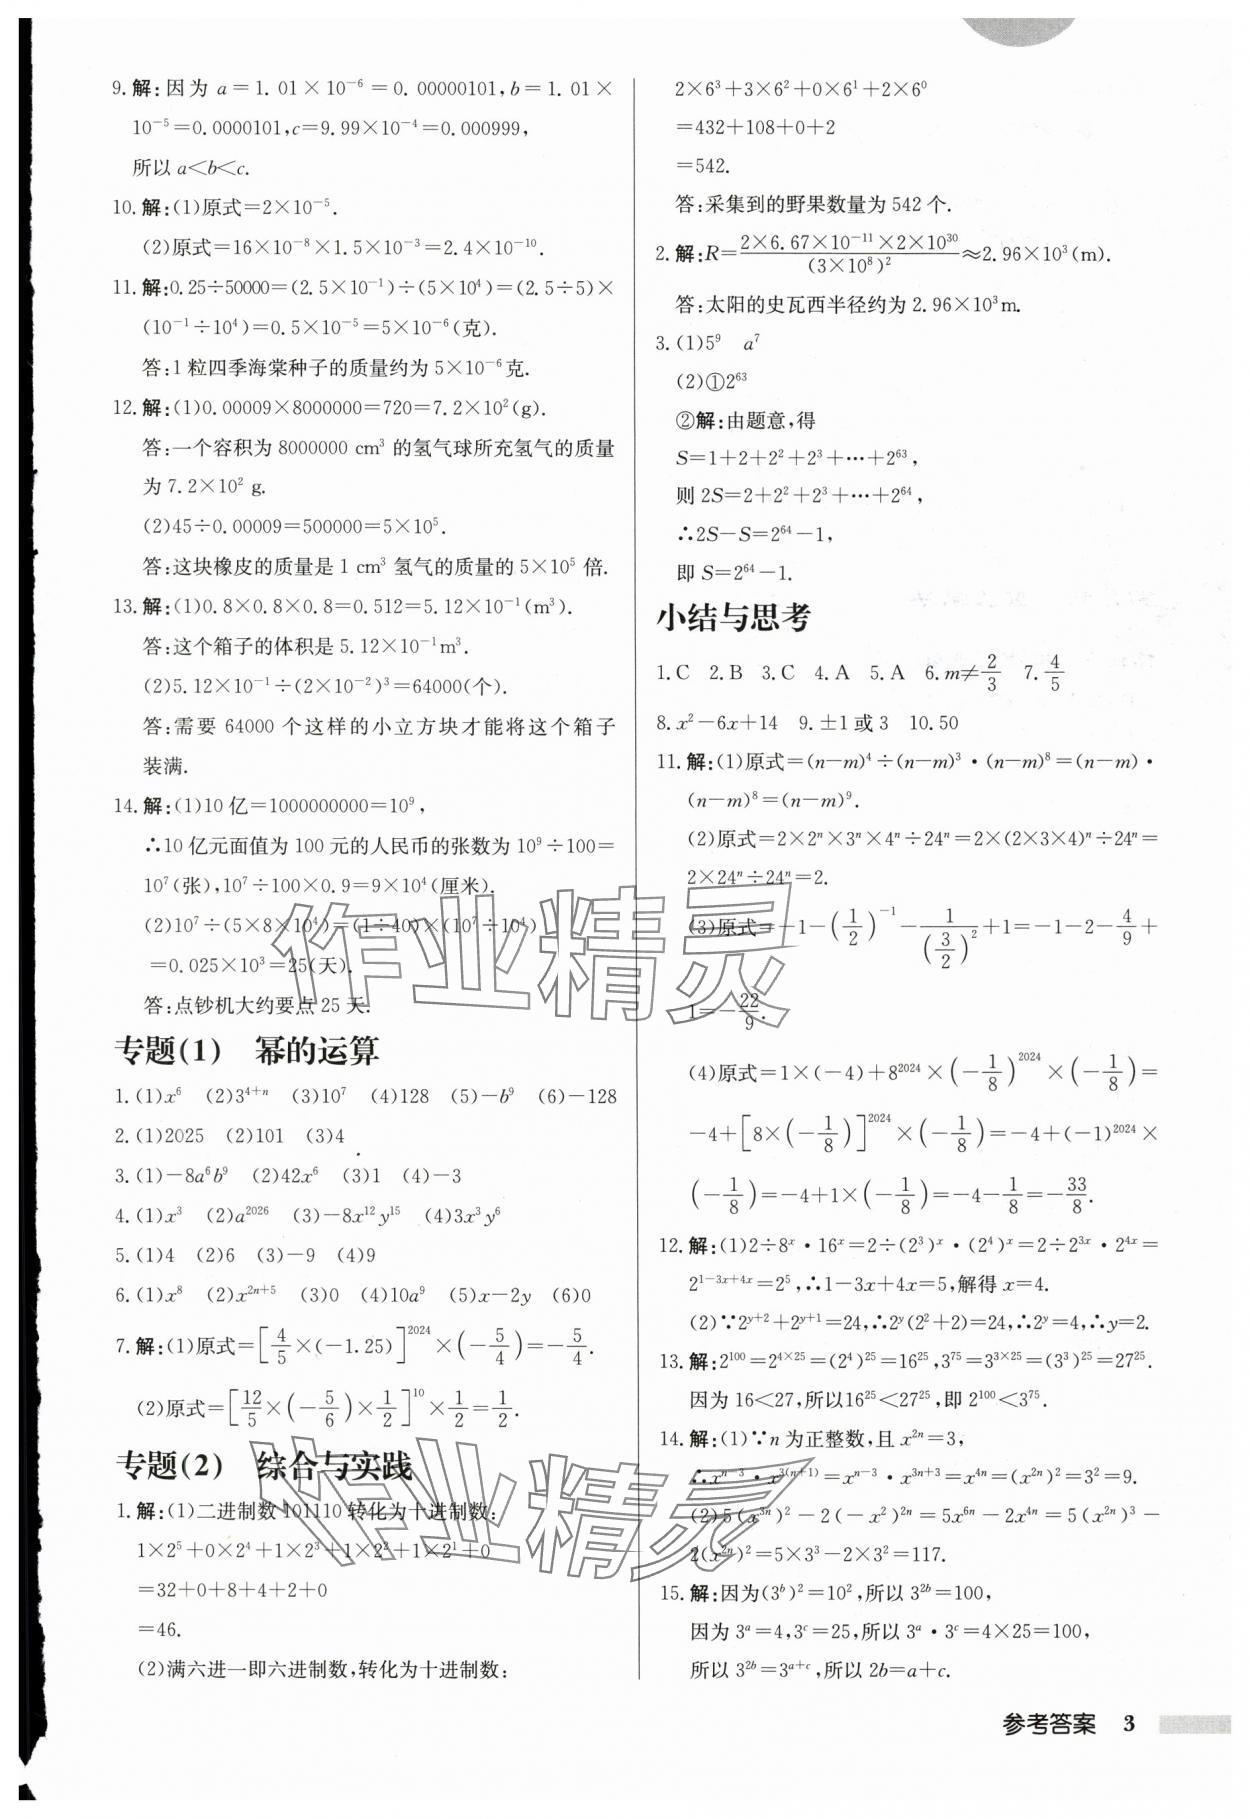 9.解:因为 a=1.01×10⁻⁶=0.00000101,b=1.01×
10⁻⁵=0.0000101,c=9.99×10⁻⁴=0.000999,
所以 a<b<c.
10.解:(1)原式=2×10⁻⁵.
(2)原式=16×10⁻⁸×1.5×10⁻³=2.4×10⁻¹⁰.
11.解:0.25÷50000=(2.5×10⁻¹)÷(5×10⁴)=(2.5÷5)×
(10⁻¹÷10⁴)=0.5×10⁻⁵=5×10⁻⁶(克).
答:1 粒四季海棠种子的质量约为 5×10⁻⁶克.
12.解:(1)0.00009×8000000=720=7.2×10²(g).
答:一个容积为 8000000 cm³ 的氢气球所充氢气的质量
为 7.2×10² g.
(2)45÷0.00009=500000=5×10⁵.
答:这块橡皮的质量是 1 cm³ 氢气的质量的 5×10⁵ 倍.
13.解:(1)0.8×0.8×0.8=0.512=5.12×10⁻¹(m³).
答:这个箱子的体积是 5.12×10⁻¹m³.
(2)5.12×10⁻¹÷(2×10⁻²)³=64000(个).
答:需要 64000 个这样的小立方块才能将这个箱子
装满.
14.解:(1)10 亿=1000000000=10⁹,
∴10 亿元面值为 100 元的人民币的张数为 10⁹÷100=
10⁷(张),10⁷÷100×0.9=9×10⁴(厘米).
(2)10⁷÷(5×8×10⁴)=(1÷40)×(10⁷÷10⁴)
=0.025×10³=25(天).
答:点钞机大约要点 25 天.
专题(1) 幂的运算
1.(1)x⁶ (2)3⁴⁺ⁿ (3)10⁷ (4)128 (5)-b⁹ (6)-128
2.(1)2025 (2)101 (3)4
3.(1)-8a⁶b⁹ (2)42x⁶ (3)1 (4)-3
4.(1)x³ (2)a²⁰²⁶ (3)-8x¹²y¹⁵ (4)3x³y⁶
5.(1)4 (2)6 (3)-9 (4)9
6.(1)x⁸ (2)x²ⁿ⁺⁵ (3)0 (4)10a⁹ (5)x-2y (6)0
7.解:(1)原式=[4/5×(-1.25)]²⁰²⁴×(-5/4)=-5/4.
(2)原式=[12/5×(-5/6)×1/2]¹⁰×1/2=1/2.
专题(2) 综合与实践
1.解:(1)二进制数 101110 转化为十进制数:
1×2⁵+0×2⁴+1×2³+1×2²+1×2¹+0
=32+0+8+4+2+0
=46.
(2)满六进一即六进制数,转化为十进制数:
2×6³+3×6²+0×6¹+2×6⁰
=432+108+0+2
=542.
答:采集到的野果数量为 542 个.
2.解:R=2×6.67×10⁻¹¹×2×10³⁰/(3×10⁸)²≈2.96×10³(m).
答:太阳的史瓦西半径约为 2.96×10³m.
3.(1)5⁹ a⁷
(2)①2⁶³
②解:由题意,得
S=1+2+2²+2³+…+2⁶³,
则 2S=2+2²+2³+…+2⁶⁴,
∴2S-S=2⁶⁴-1,
即 S=2⁶⁴-1.
小结与思考
1.C 2.B 3.C 4.A 5.A 6.m≠2/3 7.4/5
8.x²-6x+14 9.±1 或 3 10.50
11.解:(1)原式=(n-m)⁴÷(n-m)³·(n-m)⁸=(n-m)·
(n-m)⁸=(n-m)⁹.
(2)原式=2×2ⁿ×3ⁿ×4ⁿ÷24ⁿ=2×(2×3×4)ⁿ÷24ⁿ=
2×24ⁿ÷24ⁿ=2.
(3)原式=-1-(1/2)⁻¹-1/(3/2)²+1=-1-2-4/9+
1=-22/9.
(4)原式=1×(-4)+8²⁰²⁴×(-1/8)²⁰²⁴×(-1/8)=
-4+[8×(-1/8)]²⁰²⁴×(-1/8)=-4+(-1)²⁰²⁴×
(-1/8)=-4+1×(-1/8)=-4-1/8=-33/8.
12.解:(1)2÷8ˣ·16ˣ=2÷(2³)ˣ·(2⁴)ˣ=2÷2³ˣ·2⁴ˣ=
2¹⁻³ˣ⁺⁴ˣ=2⁵,∴1-3x+4x=5,解得 x=4.
(2)∵2ʸ⁺²+2ʸ⁺¹=24,∴2ʸ(2²+2)=24,∴2ʸ=4,∴y=2.
13.解:2¹⁰⁰=2⁴ˣ²⁵=(2⁴)²⁵=16²⁵,3⁷⁵=3³ˣ²⁵=(3³)²⁵=27²⁵.
因为 16<27,所以16²⁵<27²⁵,即 2¹⁰⁰<3⁷⁵.
14.解:(1)∵n 为正整数,且 x²ⁿ=3,
∴xⁿ⁻³·x³⁽ⁿ⁺¹⁾=xⁿ⁻³·x³ⁿ⁺³=x⁴ⁿ=(x²ⁿ)²=3²=9.
(2)5(x³ⁿ)²-2(-x²)²ⁿ=5x⁶ⁿ-2x⁴ⁿ=5(x²ⁿ)³-
2(x²ⁿ)²=5×3³-2×3²=117.
15.解:因为(3ᵇ)²=10²,所以 3²ᵇ=100,
因为 3ᵃ=4,3ᶜ=25,所以 3ᵃ·3ᶜ=4×25=100,
所以 3²ᵇ=3ᵃ⁺ᶜ,所以 2b=a+c.
参考答案 3
作业精灵
作业精灵